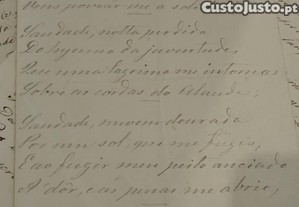 CustoJusto.pt
me a sol
Saudade, nolla perdida
Do hymno da juventude,
Pôe uma lagrima me intoneas
Sobre as cordas do Alaude;
Saudade, nuvem dourada
Por um sol, que me fugio,
E ao fugir meu peito anciado
A' dôr, e ás penas me abrio,